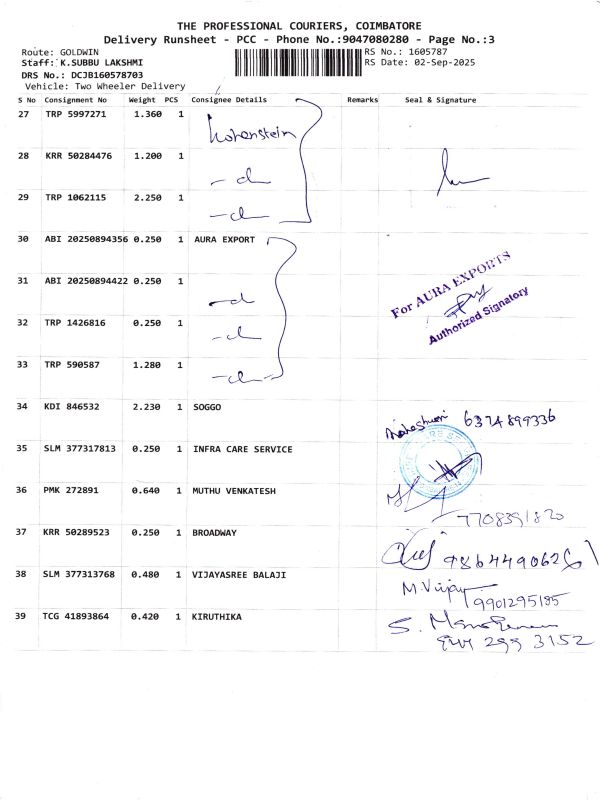 THE PROFESSIONAL COURIERS, COIMBATORE
Delivery Runsheet - PCC - Phone No.:9047080280 - Page No.:3
Route: GOLDWIN RS No.: 1605787
Staff: K.SUBBU LAKSHMI RS Date: 02-Sep-2025
DRS No.: DCJB160578703
Vehicle: Two Wheeler Delivery
S No Consignment No Weight PCS Consignee Details Remarks Seal & Signature
27 TRP 5997271 1.360 1 Hohenstein
28 KRR 50284476 1.200 1
29 TRP 1062115 2.250 1
30 ABI 20250894356 0.250 1 AURA EXPORT
For AURA EXPORTS
Authorized Signatory
31 ABI 20250894422 0.250 1
32 TRP 1426816 0.250 1
33 TRP 590587 1.280 1
34 KDI 846532 2.230 1 SOGGO 6374899336
35 SLM 377317813 0.250 1 INFRA CARE SERVICE
36 PMK 272891 0.640 1 MUTHU VENKATESH
7708391820
37 KRR 50289523 0.250 1 BROADWAY
38 SLM 377313768 0.480 1 VIJAYASREE BALAJI M.Vijay
9901295195
39 TCG 41893864 0.420 1 KIRUTHIKA
299 3152